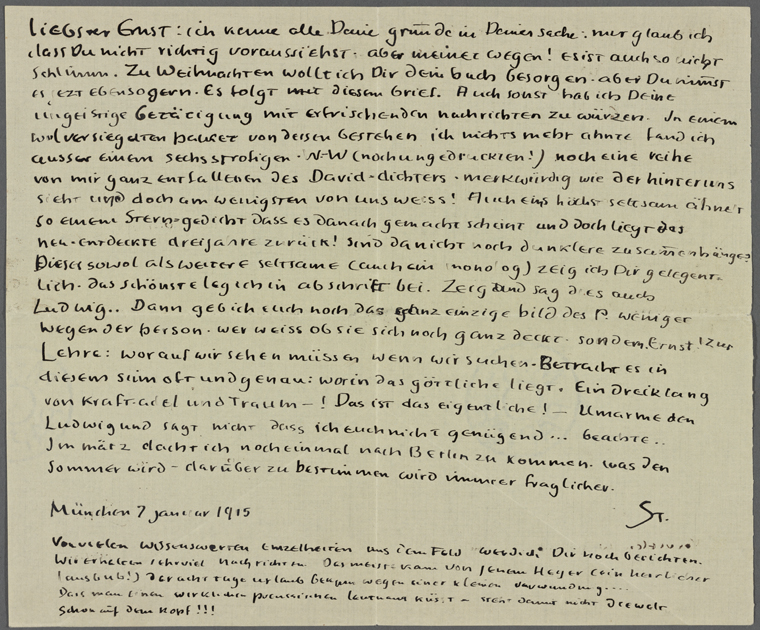 Liebster Ernst: ich kenne alle Deine gründe in Deiner sache: nur glaub ich
dass Du nicht richtig voraussiehst. aber meinetwegen! es ist auch so nicht
schlimm. Zu Weihnachten wollt ich Dir dein buch besorgen. aber Du nimmst
es jezt ebenso gern. Es folgt mit diesem brief. Auch sonst hab ich Deine
ungeistige betätigung mit erfrischenden nachrichten zu würzen. In einem
wolversiegelten packet von dessen bestehen ich nichts mehr ahnte fand ich
ausser einem sechsstrofigen N-W (noch ungedruckten!) noch eine reihe
von mir ganz entfallenen des David-dichters. merkwürdig wie der hinter uns
sieht und doch am wenigsten von uns weiss! Auch eins höchst seltsam ähnelt
so einem Stern-gedicht dass es danach gemacht scheint und doch liegt das
neu-entdeckte drei jahre zurück! Sind da nicht noch dunklere zusammenhänge?
Dieses sowol als weitere seltsame (auch ein monolog) zeig ich Dir gelegent-
lich. das schönste leg ich in abschrift bei. Zeig und sag dies auch
Ludwig.. Dann geb ich euch noch das ganz einzige bild des P. weniger
wegen der person. wer weiss ob sie sich noch ganz deckt. sondern, Ernst! zur
Lehre: worauf wir sehen müssen wenn wir suchen. Betracht es in
diesem sinn oft und genau: worin das göttliche liegt. Ein dreiklang
von Kraft adel und Traum –! Das ist das eigentliche! – Umarme den
Ludwig und sagt nicht dass ich euch nicht genügend ... beachte ..
Im märz dacht ich noch einmal nach Berlin zu kommen. was den
Sommer wird – darüber zu bestimmen wird immer fraglicher.
München 7 januar 1915
St.
Von vielen wissenswerten einzelheiten aus dem Feld werd ich Dir noch berichten.
Wir erhalten sehr viel nachrichten. Das meiste kam von jenem Heyer (ein herrlicher
(ausbub!) der acht tage urlaub bekam wegen einer kleinen verwundung....
Dass man einen wirklichen preussischen leutnant küsst – steht damit nicht die welt
schon auf dem kopf!!!